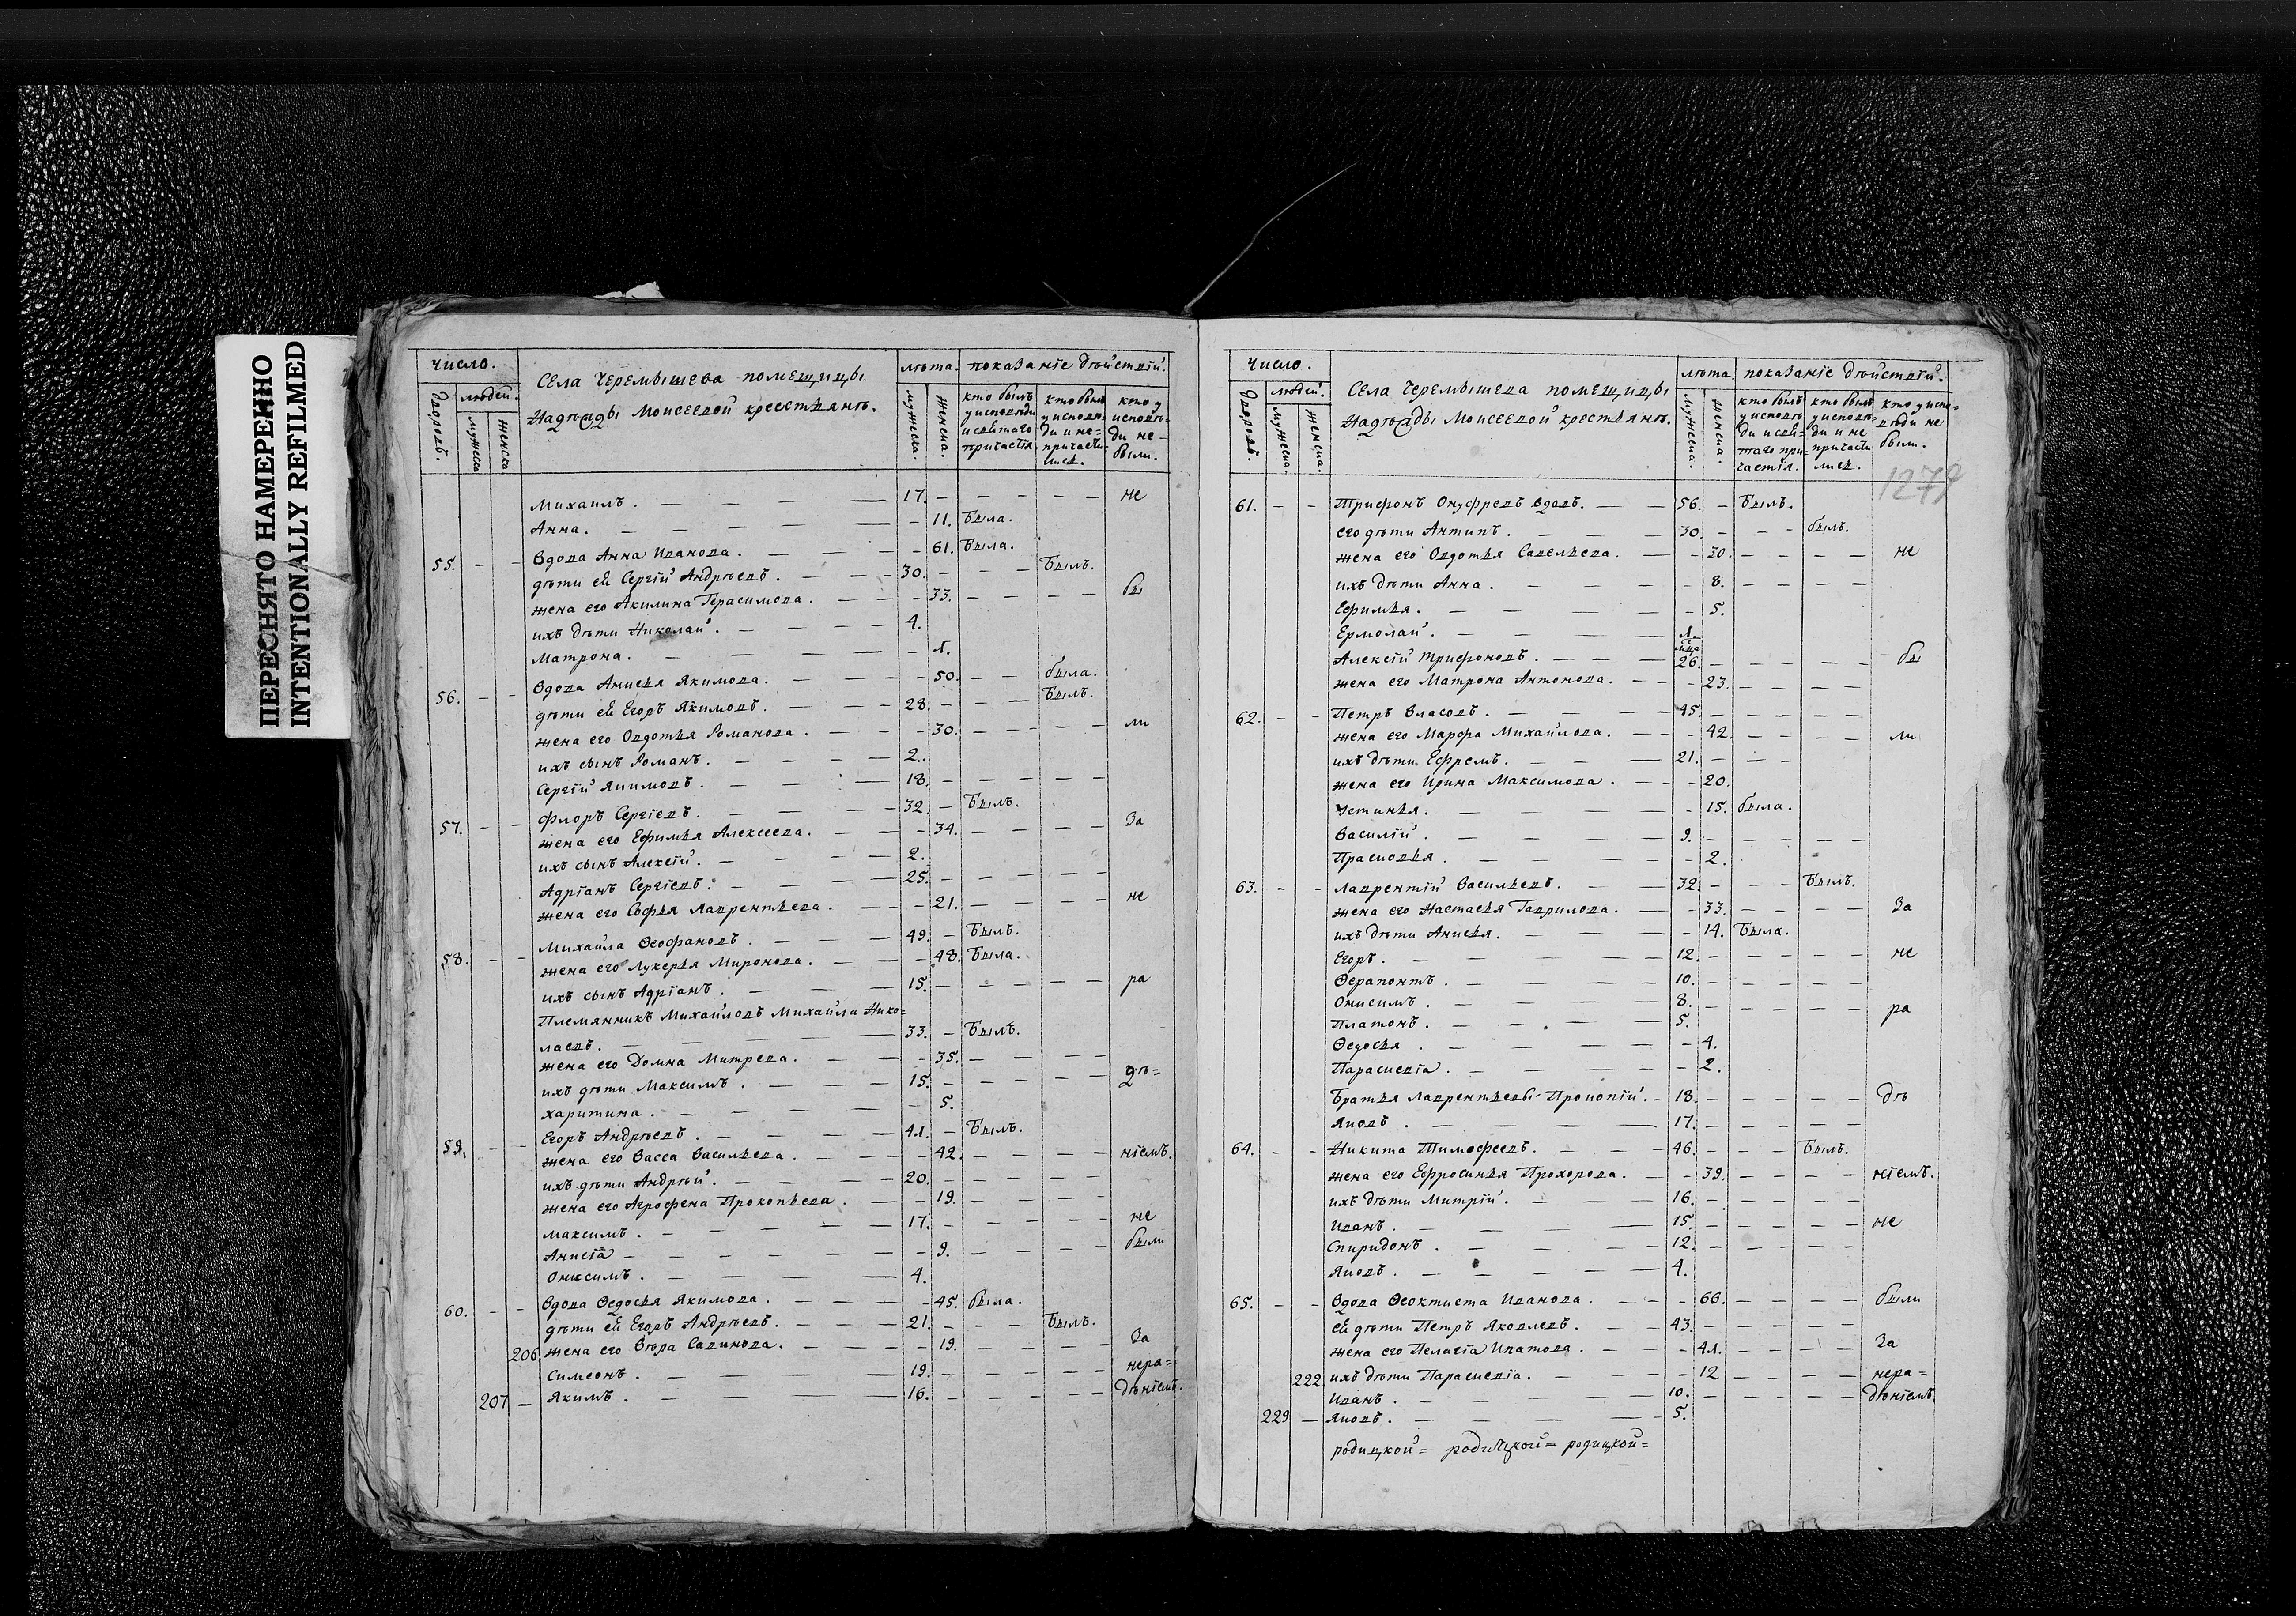 ПЕРЕСНЯТО НАМЕРЕННО
INTENTIONALLY REFILMED
число. Села Черемышева помещицы лѣта. показаніе дѣйствій.
Надѣжды Моисеевой крестьянъ.
людей.
дворовъ. мужеска женска мужеска. женска.
кто былъ у исповѣди и святаго причастія.
кто былъ у исповѣди и не причастились.
кто у исповѣди не были.
Михаилъ. 17. не
Анна. 11. Была.
55. Вдова Анна Иванова. 61. Была.
дѣти ей Сергій Андрѣевъ. 30. Былъ.
жена его Акилина Герасимова. 33. бы
ихъ дѣти Николай. 4.
Матрона. 1.
56. Вдова Анисья Якимова. 50. была.
дѣти ей Егоръ Якимовъ. 28. Былъ.
жена его Овдотья Романова. 30. ли
ихъ сынъ Романъ. 2.
Сергій Якимовъ. 18.
57. Флоръ Сергіевъ. 32. Былъ.
жена его Ефимья Алексеева. 34. За
ихъ сынъ Алексій. 2.
Адріанъ Сергіевъ. 25.
жена его Софья Лаврентьева. 21. не
58. Михаила Ѳеофановъ. 49. Былъ.
жена его Лукерья Миронова. 48. Была.
ихъ сынъ Адріанъ. 15. ра
Племянникъ Михайловъ Михайла Нико=
лаевъ. 33. Былъ.
жена его Домна Митрева. 35.
ихъ дѣти Максимъ. 15. дѣ=
Харитина. 5.
59. Егоръ Андрѣевъ. 41. Былъ.
жена его Васса Васильева. 42. ніемъ.
ихъ дѣти Андрѣй. 20.
жена его Агрофена Прокопьева. 19.
Максимъ. 17. не
Анисіа 9. были
Онисимъ. 4.
60. Вдова Ѳедосья Якимова. 45. была.
дѣти ей Егоръ Андрѣевъ. 21. Былъ.
206 жена его Вѣра Савинова. 19. За
Симеонъ. 19. нера=
207 Якимъ. 16. дѣніемъ.
число. Села Черемышева помещицы лѣта показаніе дѣйствій.
Надѣжды Моисеевой крестьянъ.
людей.
дворовъ. мужеска. женска. мужеска. женска.
кто былъ у исповѣди и святаго причастія.
кто былъ у исповѣди и не причастились.
кто у исповѣди не были.
1279
61. Трифонъ Онуфревъ вдовъ. 56. Былъ.
его дѣти Антипъ. 30. былъ.
жена его Овдотья Савельева. 30. не
ихъ дѣти Анна. 8.
Ефимья. 5.
Ермолай.
Алексій Трифоновъ. 26. бы
жена его Матрона Антонова. 23.
62. Петръ Власовъ. 45.
жена его Марфа Михайлова. 42. ли
ихъ дѣти Ефремъ. 21.
жена его Ирина Максимова. 20.
Устинья. 15. была.
Василій. 9.
Прасковья. 2.
63. Лаврентій Васильевъ. 32. Былъ.
жена его Настасья Гаврилова. 33. За
ихъ дѣти Анисья. 14. Была.
Егоръ. 12. не
Ѳерапонтъ. 10.
Онисимъ. 8.
Платонъ. 5. ра
Ѳедосья. 4.
Параскевіа. 2.
Братья Лаврентьевы Прокопій. 18. дѣ
Яковъ. 17.
64. Никита Тимофеевъ. 46. Былъ.
жена его Ефросинья Прохорова. 39. ніемъ.
ихъ дѣти Митрій. 16.
Иванъ. 15. не
Спиридонъ. 12.
Яковъ. 4.
65. Вдова Ѳеоктиста Иванова. 66. были
ей дѣти Петръ Яковлевъ. 43.
жена его Пелагіа Ипатова. 41. За
222 ихъ дѣти Параскевіа. 12 нера=
Иванъ. 10. дѣніемъ.
229 Яковъ. 5.
родицкой= родицкой= родицкой=